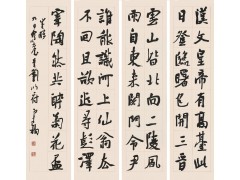 漢文皇帝有高臺此
日登臨曙色開三晉
雲山皆北向二陵風
雨自東來關門令尹
誰能識河上仙翁去
不回且欲近尋彭澤
宰陶然共醉菊花盃